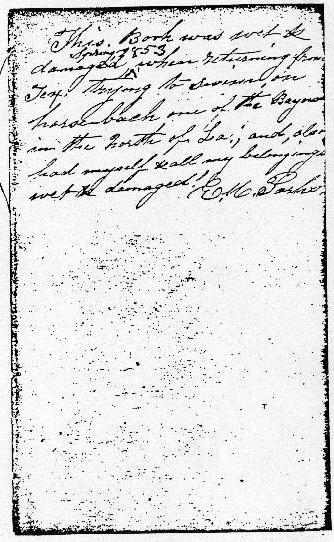 This Book was wet &
Spring 1853
damaged, when returning from
Tex. trying to swim on
horse back one of the Bayous
in the North of La.; and, also
had myself & all my belongings
wet & damaged!
E. M. Parke